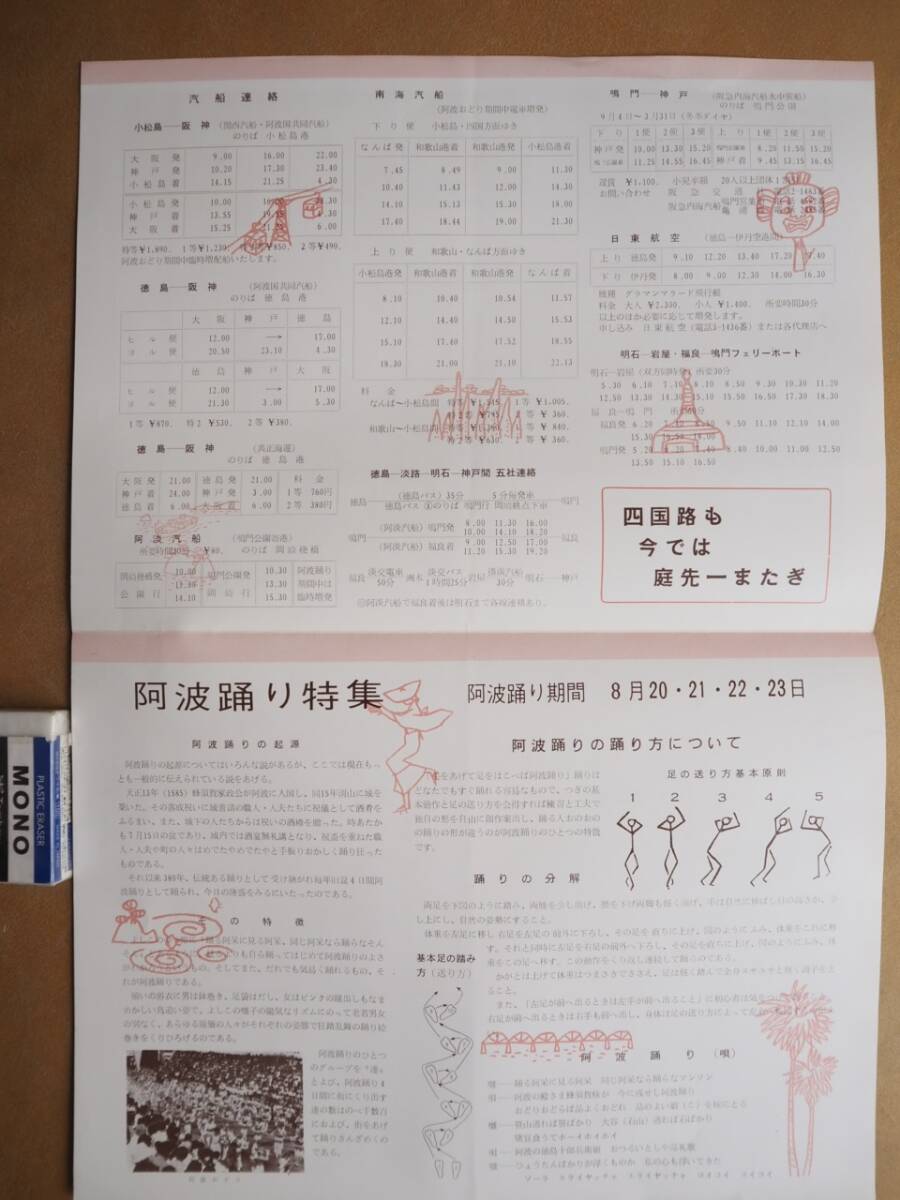 汽船連絡
小松島―阪神 (関西汽船・阿波国共同汽船)
のりば 小松島港
大阪発 9.00 16.00 22.00
神戸発 10.20 17.30 23.40
小松島着 14.15 21.25 4.30
小松島発 10.00
神戸着 13.55
大阪着 15.25 6.00
特等¥1,890. 1等¥1,230. ¥850. 2等¥490.
阿波おどり期間中臨時増配船いたします。
徳島―阪神 (阿波国共同汽船)
のりば 徳島港
大阪 神戸 徳島
ヒル便 12.00 → 17.00
ヨル便 20.50 23.10 4.30
徳島 神戸 大阪
ヒル便 12.00 → 17.00
ヨル便 21.30 3.00 5.30
1等¥870. 特2¥530. 2等¥380.
徳島―阪神 (共正海運)
のりば 徳島港
大阪発 21.00 徳島発 21.00 料金
神戸着 24.00 神戸発 3.00 1等 760円
徳島着 6.00 大阪着 6.00 2等 380円
阿淡汽船 (鳴門公園寄港)
所要時間30分 ¥80. のりば 岡崎桟橋
岡崎桟橋発 10.00 鳴門公園発 10.30 阿波踊り
13.30 期間中は
公園行 14.10 岡崎行 15.30 臨時増発
南海汽船
(阿波おどり期間中電車増発)
下り便 小松島・四国方面ゆき
なんば発 和歌山港着 和歌山港発 小松島港着
7.45 8.49 9.00 11.30
10.40 11.43 12.00 14.30
14.10 15.13 15.30 18.00
17.40 18.44 19.00 21.30
上り便 和歌山・なんば方面ゆき
小松島港発 和歌山港着 和歌山港発 なんば着
8.10 10.40 10.54 11.57
12.10 14.40 14.50 15.53
15.10 17.40 17.52 18.55
18.30 21.00 21.10 22.13
料金
なんば~小松島間 1等 ¥1,005.
2等 ¥ 360.
和歌山~小松島間 1等 ¥ 840.
特2 ¥630. 2等 ¥ 360.
徳島―淡路―明石―神戸間 五社連絡
徳島 (徳島バス) 35分 5分毎発車 鳴門
鳴門 (阿淡汽船) 鳴門発 8.00 11.30 16.00 福良
10.00 14.10 18.20
(阿淡汽船) 福良着 9.00 12.50 17.00
11.20 15.30 19.20
福良 淡交電車 50分 洲本 淡交バス 1時間25分 岩屋 30分 明石―神戸
◎阿淡汽船で福良着後は明石まで各線連絡あり。
鳴門―神戸 (阪急内海汽船水中翼船)
のりば 鳴門公園
9月4日~3月31日 (冬季ダイヤ)
下り 1便 2便 3便 上り 1便 2便 3便
神戸発 10.00 13.30 15.20 8.20 11.50 15.20
11.25 14.55 16.45 神戸着 9.45 13.15 16.45
運賃 ¥1,100. 小児半額 20人以上団体1
お問い合わせ 阪急交通
阪急内海汽船 鳴門営業
日東航空 (徳島―伊丹空港間)
上り 徳島発 9.10 12.20 13.40 17.20
下り 伊丹発 8.00 9.00 12.30 14.00 16.30
機種 グラマンマラード飛行艇
料金 大人 ¥2,300. 小人 ¥1,400. 所要時間30分
以上のほか必要に応じて増発します。
申し込み 日東航空 (電話3-1436番) または各代理店へ
明石―岩屋・福良―鳴門フェリーボート
明石―岩屋 (双方同時発) 所要30分
5.30 6.10 7.10 8.10 8.50 9.30 10.30 11.20
12.50 13.30 14.30 15.10 15.50 16.50 17.30 18.30
福良―鳴門
福良発 6.20 9.00 10.00 12.10 14.00
15.30 19.00
鳴門発 5.20 9.10 10.30 12.20
13.50 15.10 16.50
四国路も
今では
庭先一またぎ
阿波踊り特集
阿波踊り期間 8月20・21・22・23日
阿波踊りの起源
阿波踊りの起源についてはいろんな説があるが、ここでは現在もっ
とも一般的に伝えられている説をあげる。
天正13年 (1585) 蜂須賀家政公が阿波に入国し、同15年渭山に城を
築いた。その落成祝いに城普請の職人・人夫たちに祝儀として酒肴を
ふるまい、また、城下の人たちからは祝いの酒樽を贈った。時あたか
も7月15日の盆であり、城内では酒宴無礼講となり、祝盃を重ねた職
人・人夫や町の人々はめでたやめでたやと手振りおかしく踊り狂った
ものである。
それ以来380年、伝統ある踊りとして受け継がれ毎年旧盆4日間阿
波踊りとして踊られ、今日の隆盛をみるにいたったのである。
その特徴
踊る阿呆に見る阿呆、同じ阿呆なら踊らなそん
りも自ら踊ってはじめて阿波踊りのよさ
もの、そしてまた、だれでも気易く踊れるもの、そ
れが阿波踊りである。
揃いの浴衣に男は鉢巻き、足袋はだし、女はピンクの蹴出しもなま
めかしい鳥追い姿で、よしこの囃子の陽気なリズムにのって老若男女
の別なく、あらゆる階層の人々がそれぞれの姿態で狂踏乱舞の踊り絵
巻きをくりひろげるのである。
阿波踊りのひとつ
のグループを“連”
とよび、阿波踊り4
日間に街にくり出す
連の数はのべ千数百
におよび、街をあげ
て踊りさんざめくの
である。
阿波おどり
阿波踊りの踊り方について
をあげて足をはこべば阿波踊り」踊りは
どなたでもすぐ踊れる容易なもので、つぎの基
本動作と足の送り方を会得すれば練習と工夫で
独自の形を自由に創作案出し、踊る人おのおの
の踊りの形が違うのが阿波踊りのひとつの特徴
です。
足の送り方基本原則
1 2 3 4 5
踊りの分解
両足を下図のように踏み、両膝を少し曲げ、腰を下げ両腕も軽く曲げ、手は自然に伸ばし目の高さか、少
し上にし、自然の姿勢にすること。
体重を左足に移し右足を左足の前外に下ろし、その足を直ちに上げ、図のようにふみ、体重をこれに移
す。それと同時に左足を右足の前外へ下ろし、その足を直ちに上げ、図のようにふみ、体
重をこの足へ移す。この動作をくり返し連続して踊るのである。
基本足の踏み
方 (送り方)
かがとは上げて体重はつまさきでささえ、
また、「左足が前へ出るときは左手が前へ出ること」に初心者は気を
右足が前へ出るときは右手も前へ出し、身体は足の送り方によって左
阿波踊り (唄)
囃―踊る阿呆に見る阿呆 同じ阿呆なら踊らなソンソン
唄―阿波の殿さま蜂須賀様が 今に残せし阿波踊り
おどりおどらば品よくおどれ 品のよい娘 (こ) を嫁にとる
囃―笹山通れば笹ばかり 大谷 (石山) 通れば石ばかり
猪豆食うてホーイホイホイ
唄―阿波の徳島十郎兵衛館 おつるいとしや巡礼歌
囃―ひょうたんばかりが浮くものか 私の心も浮いてきた
ソーラ エライヤッチャ エライヤッチャ ヨイヨイ ヨイヨイ
PLASTIC ERASER
MONO